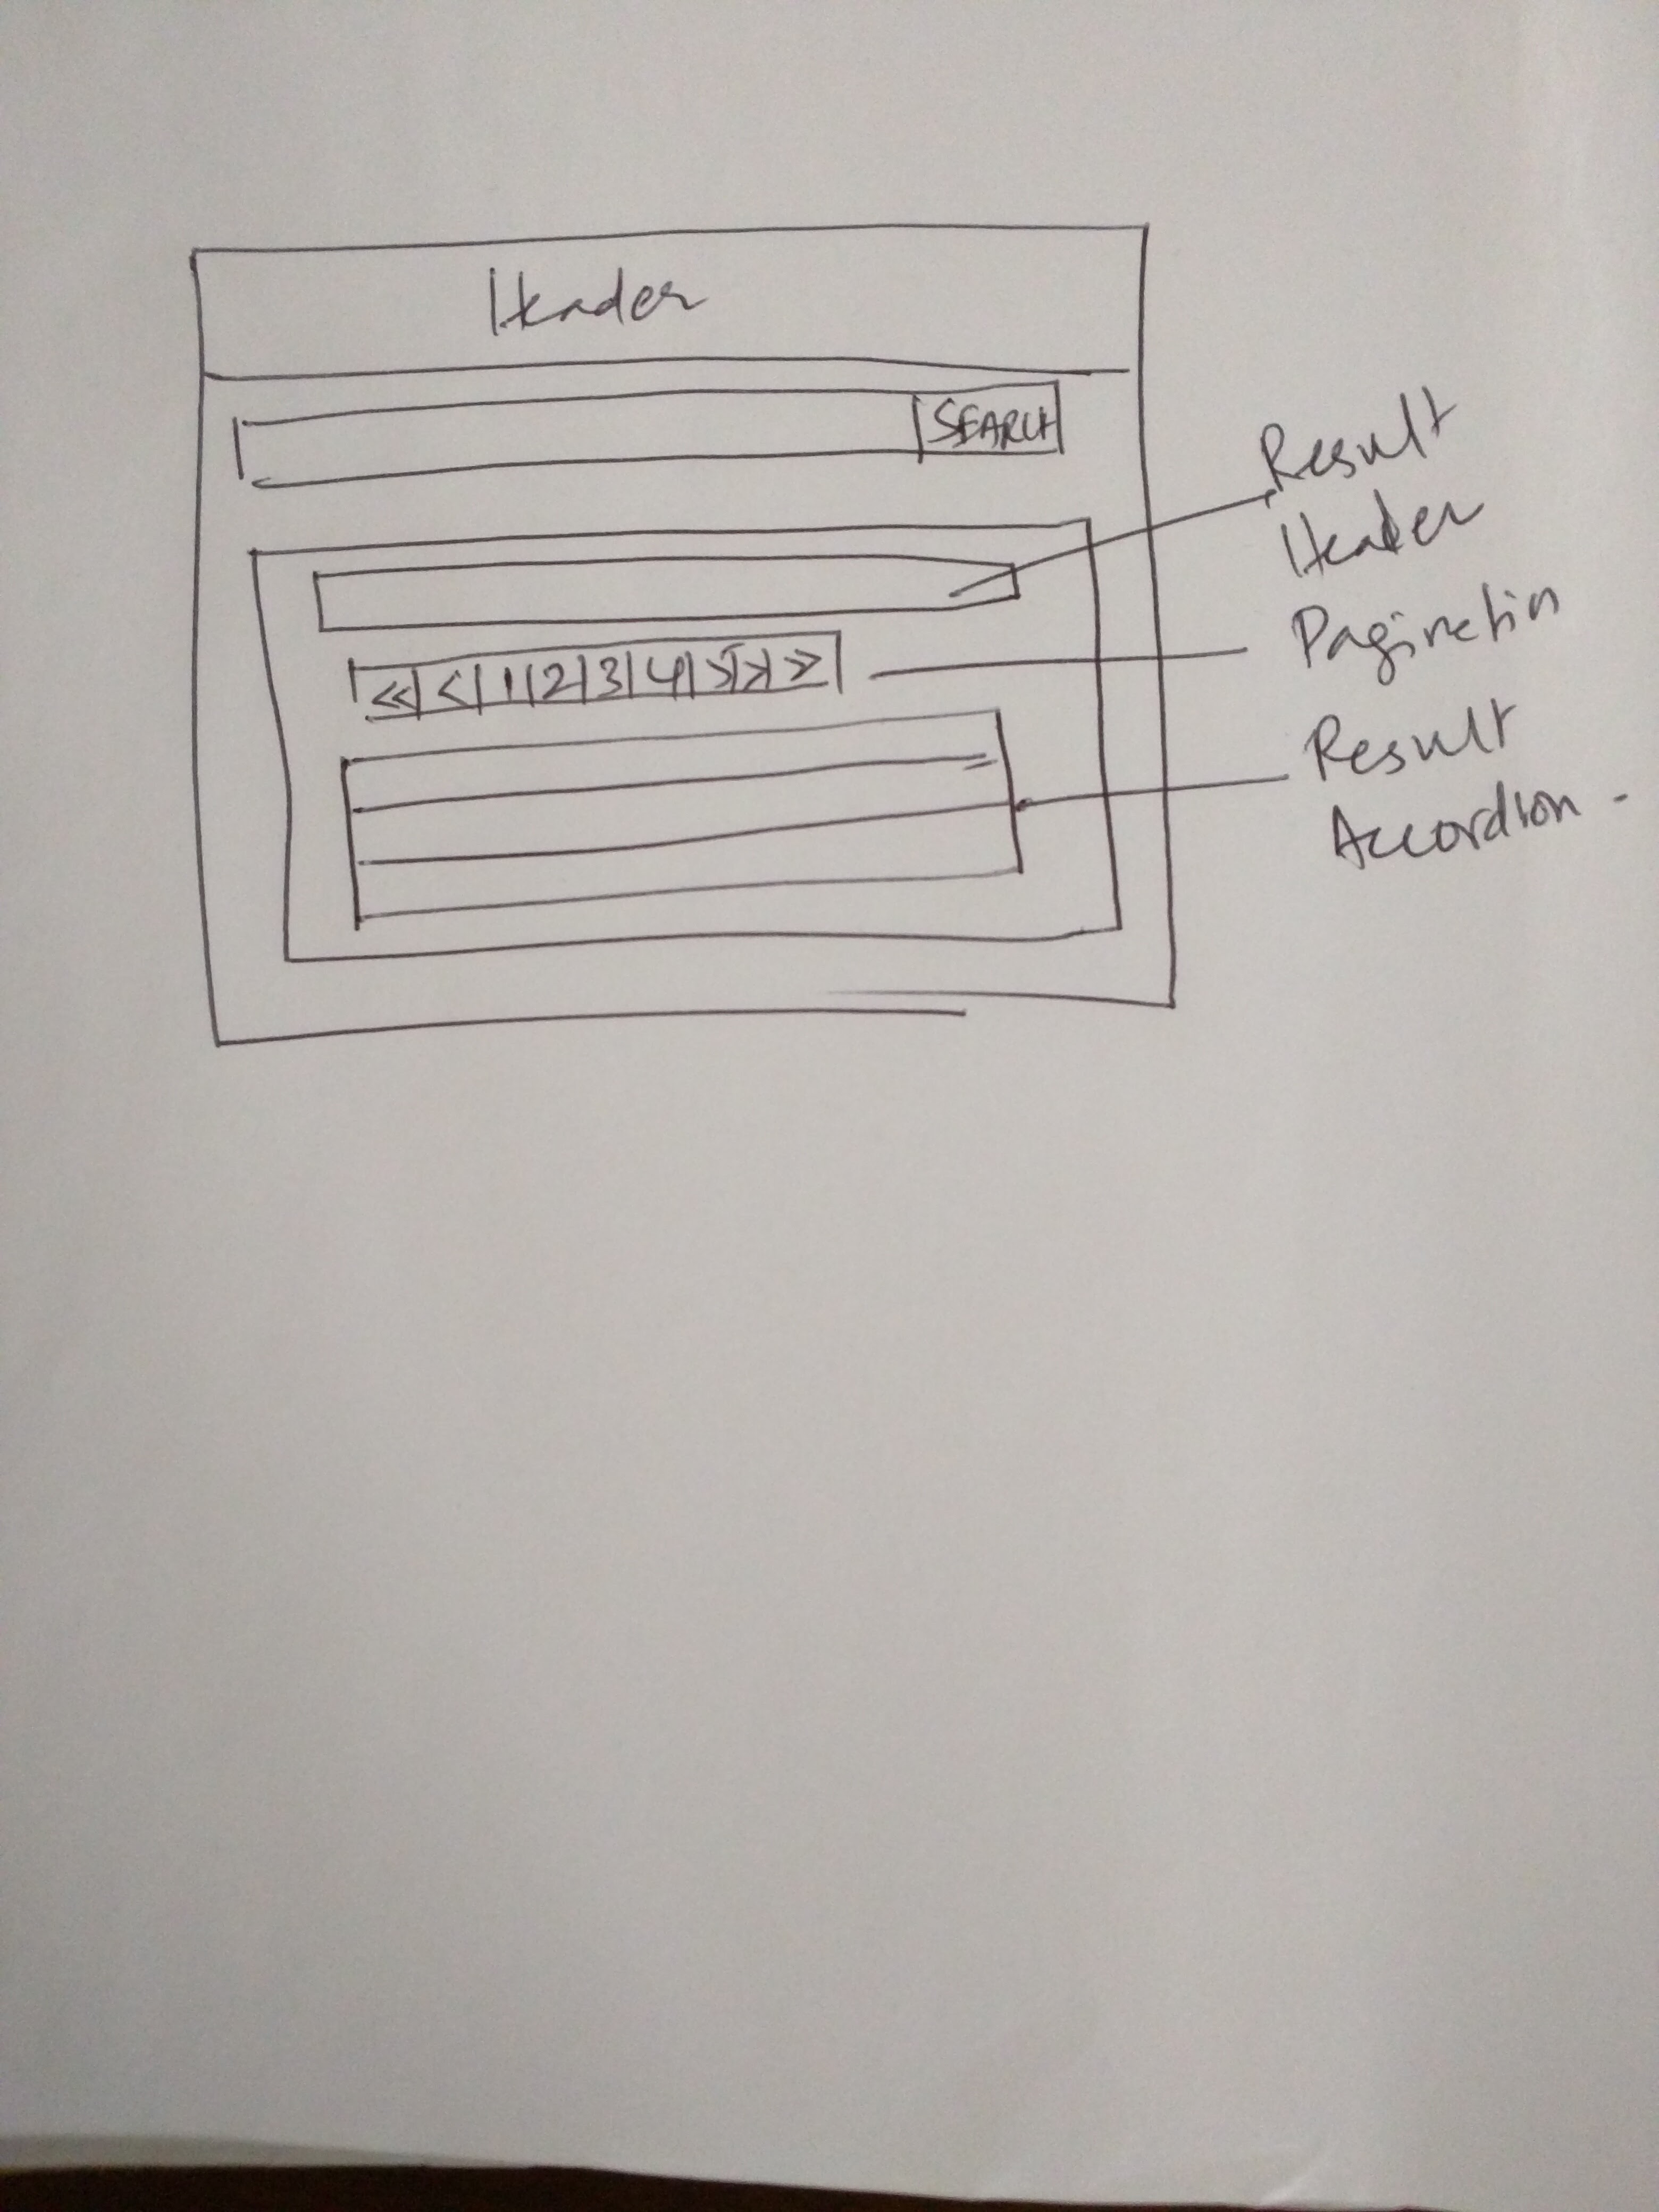 Header
SEARCH
Result
Header
<< < 1 2 3 4 5 > >>
Pagination
Result
Accordion -